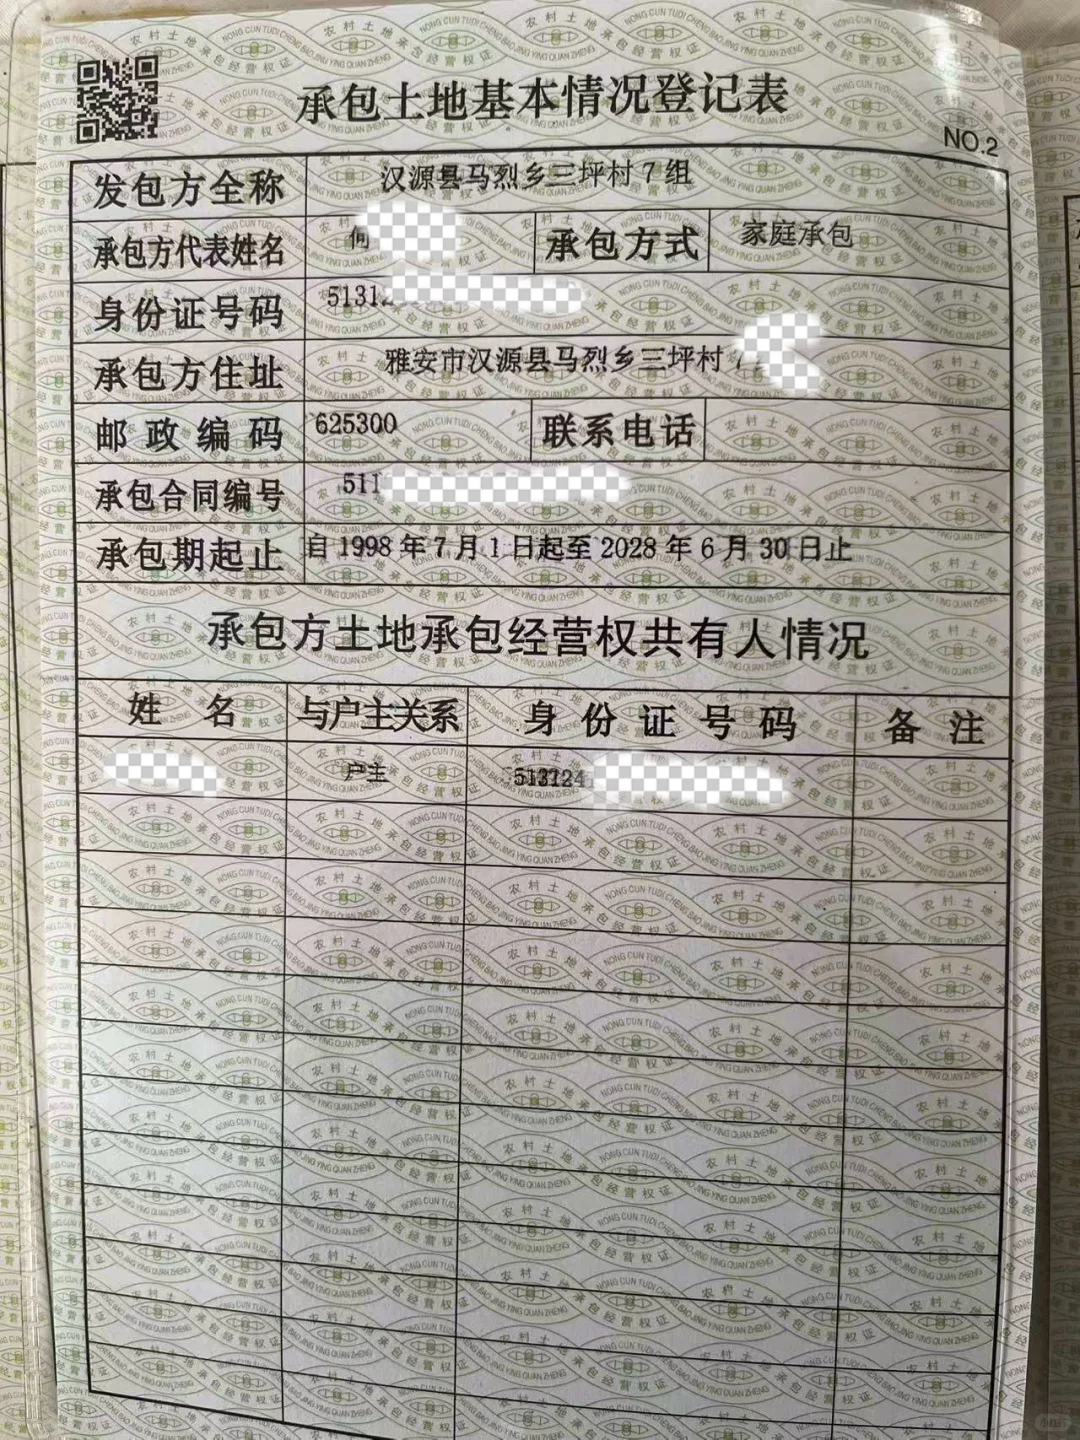 承包土地基本情况登记表
NO.2
发包方全称 汉源县马烈乡三坪村7组
承包方代表姓名 何 承包方式 家庭承包
身份证号码 5131
承包方住址 雅安市汉源县马烈乡三坪村
邮政编码 625300 联系电话
承包合同编号 511
承包期起止 自1998年7月1日起至2028年6月30日止
承包方土地承包经营权共有人情况
姓名 与户主关系 身份证号码 备注
户主 513124